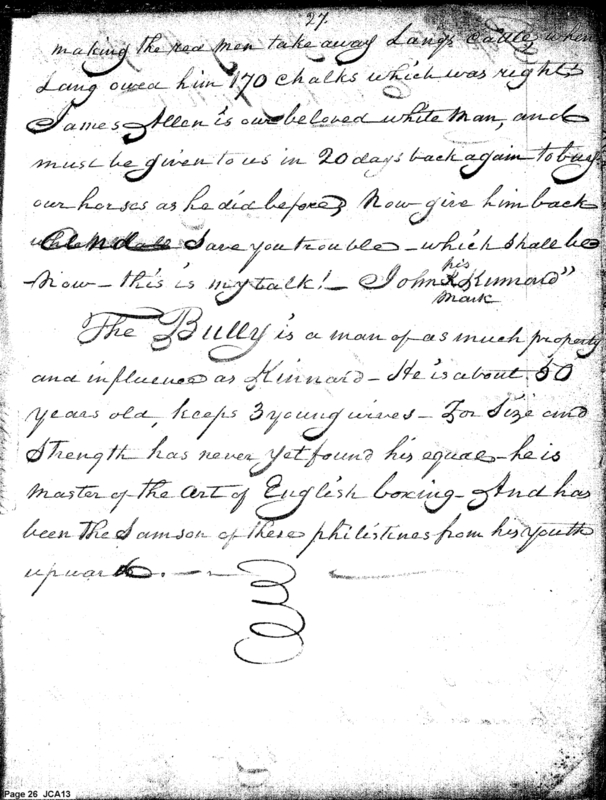 27.
making the red men take away Lang's Cattle, when
Lang owed him 170 chalks which was right
James Allen is our beloved white man, and
must be given to us in 20 days back again to buy
our horses as he did before, Now give him back
and save you trouble - which shall be
now - this is my talk! - John X Kinnard"
his
mark
The Bully is a man of as much property
and influence as Kinnard - He is about 50
years old, keeps 3 young wives - For Size and
Strength has never yet found his equal - he is
master of the art of English boxing - And has
been the Samson of these philistines from his youth
upward. - -
Page 26 JCA13